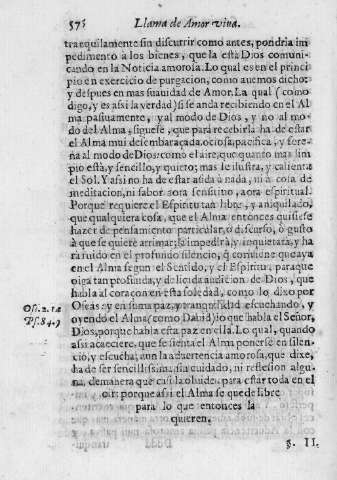 573 Llama de Amor viua.
tranquilamente sin discurrir como antes, pondria im
pedimento à los bienes, que la està Dios comuni-
cando en la Noticia amorosa. Lo qual es en el princi
pio en exercicio de purgacion, como auemos dicho:
y despues en mas suauidad de Amor. La qual (como
digo, y es assi la verdad) si se anda recibiendo en el Al
ma pasiuamente, y al modo de Dios, y no al mo-
do del Alma, siguese, que para recebirla ha de estar
el Alma mui desembaraçada, ociosa, pacifica, y sere-
na al modo de Dios: como el aire, que quanto mas lim
pio està, y sencillo, y quieto; mas le ilustra, y calienta
el Sol. Y assi no ha de estar asida à nada, ni à cosa de
meditacion, ni sabor aora sensitiuo, aora espiritual.
Porque requiere el Espiritu tan libre, y aniquilado,
que qualquiera cosa, que el Alma entonces quisiese
hazer de pensamiento particular, ò discurso, ò gusto
à que se quiere arrimar; la impedirà, y inquietarà, y ha
rà ruido en el profundo silencio, q̃ conviene que aya
en el Alma segun el Sentido, y el Espiritu, para que
oiga tan profunda, y delicada audicion de Dios, que
habla al coraçon en esta soledad, como lo dixo por
Oseas: y en suma paz, y tranquilidad escuchando, y
oyendo el Alma (como Dabid) lo que habla el Señor,
Dios, porque habla esta paz en ella. Lo qual, quando
assi acaeciere, que se sienta el Alma ponerse en silen-
cio, y escucha; aun la aduertencia amorosa, que dixe,
ha de ser sencillissima, sin cuidado, ni reflesion algu-
na, de manera que casi la oluide, para estar toda en el
oir: porque assi el Alma se quede libre
para lo que entonces la
quieren.
Os. 2. 14
Ps. 84. 9
§. II.